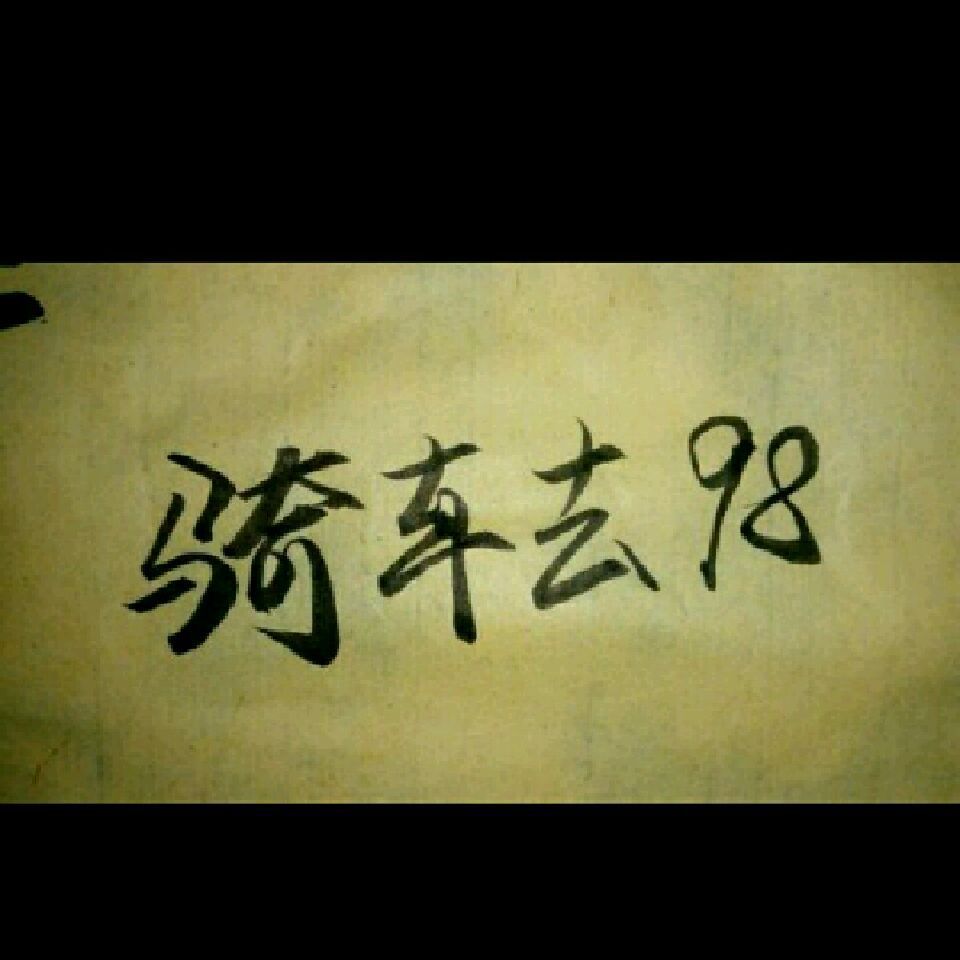 骑车去98